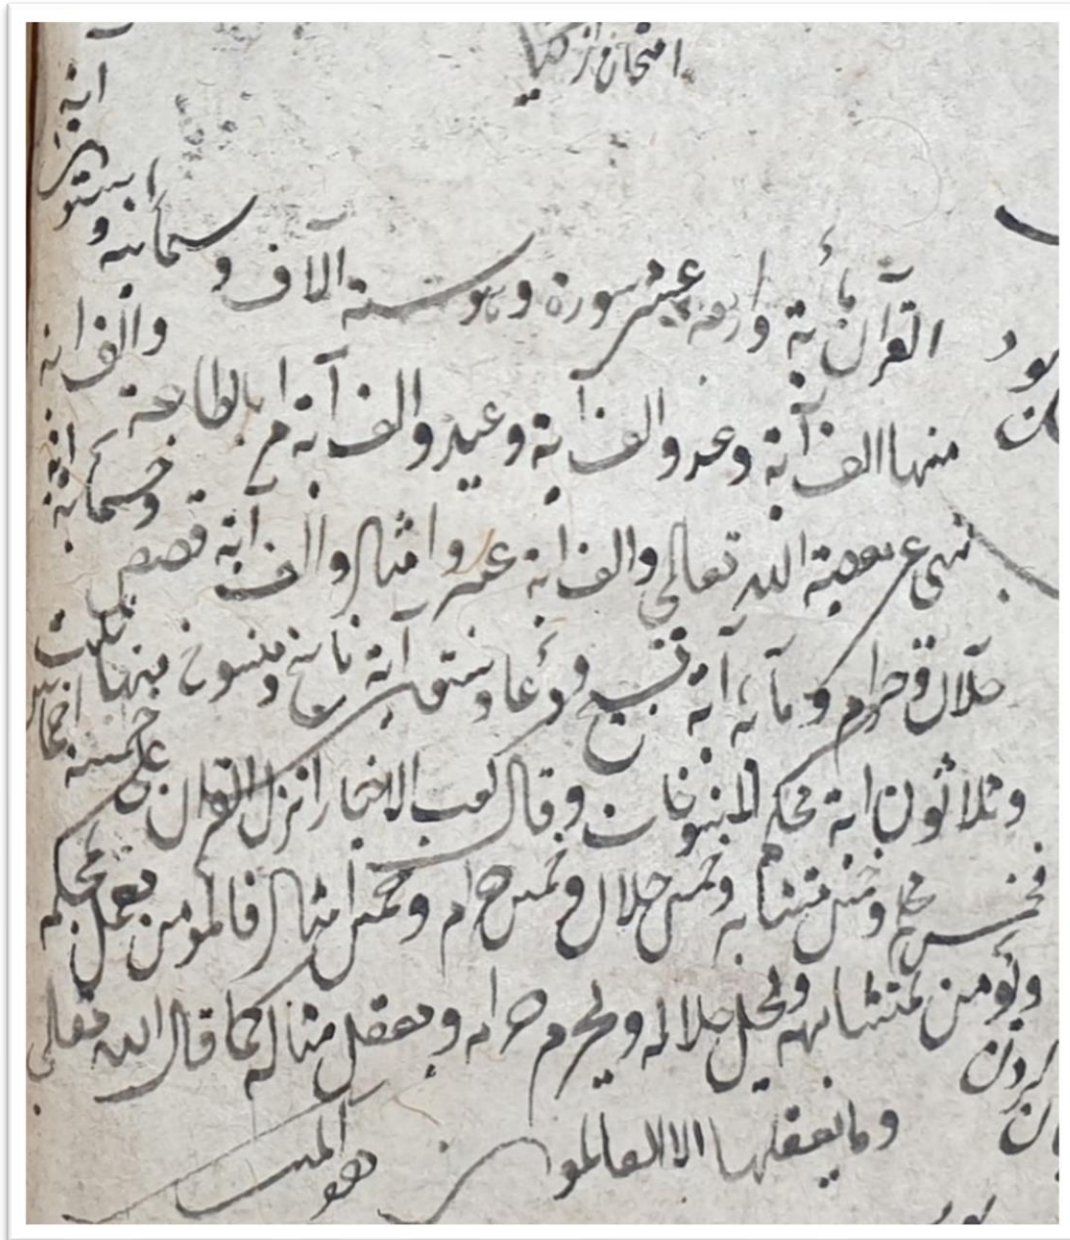 امتحان از
القرآن مأية واربعة عشر سورة و ستة الاف و ستمائة و ستون اية
منها الف آية وعد والف آية وعيد والف آية امر بالطاعة والف اية
نهى عن معصية الله تعالى والف اية عبر وامثال والف آية قصص وخمسمائة اية
حلال وحرام ومأية آية تسبيح ودعا وستة آية ناسخ ومنسوخ منها ثلث
وثلاثون اية محكم المنسوخات وقال كعب الاخبار انزل القرآن على خمسة انحاء
فخمس محكم وخمس متشابه وخمس حلال وخمس حرام وخمس امثال فالمؤمن يعمل بمحكمه
ويؤمن بمتشابهه ويحل حلاله ويحرم حرامه ويعقل مثاله كما قال الله تعالى
وما يعقلها الا العالمون